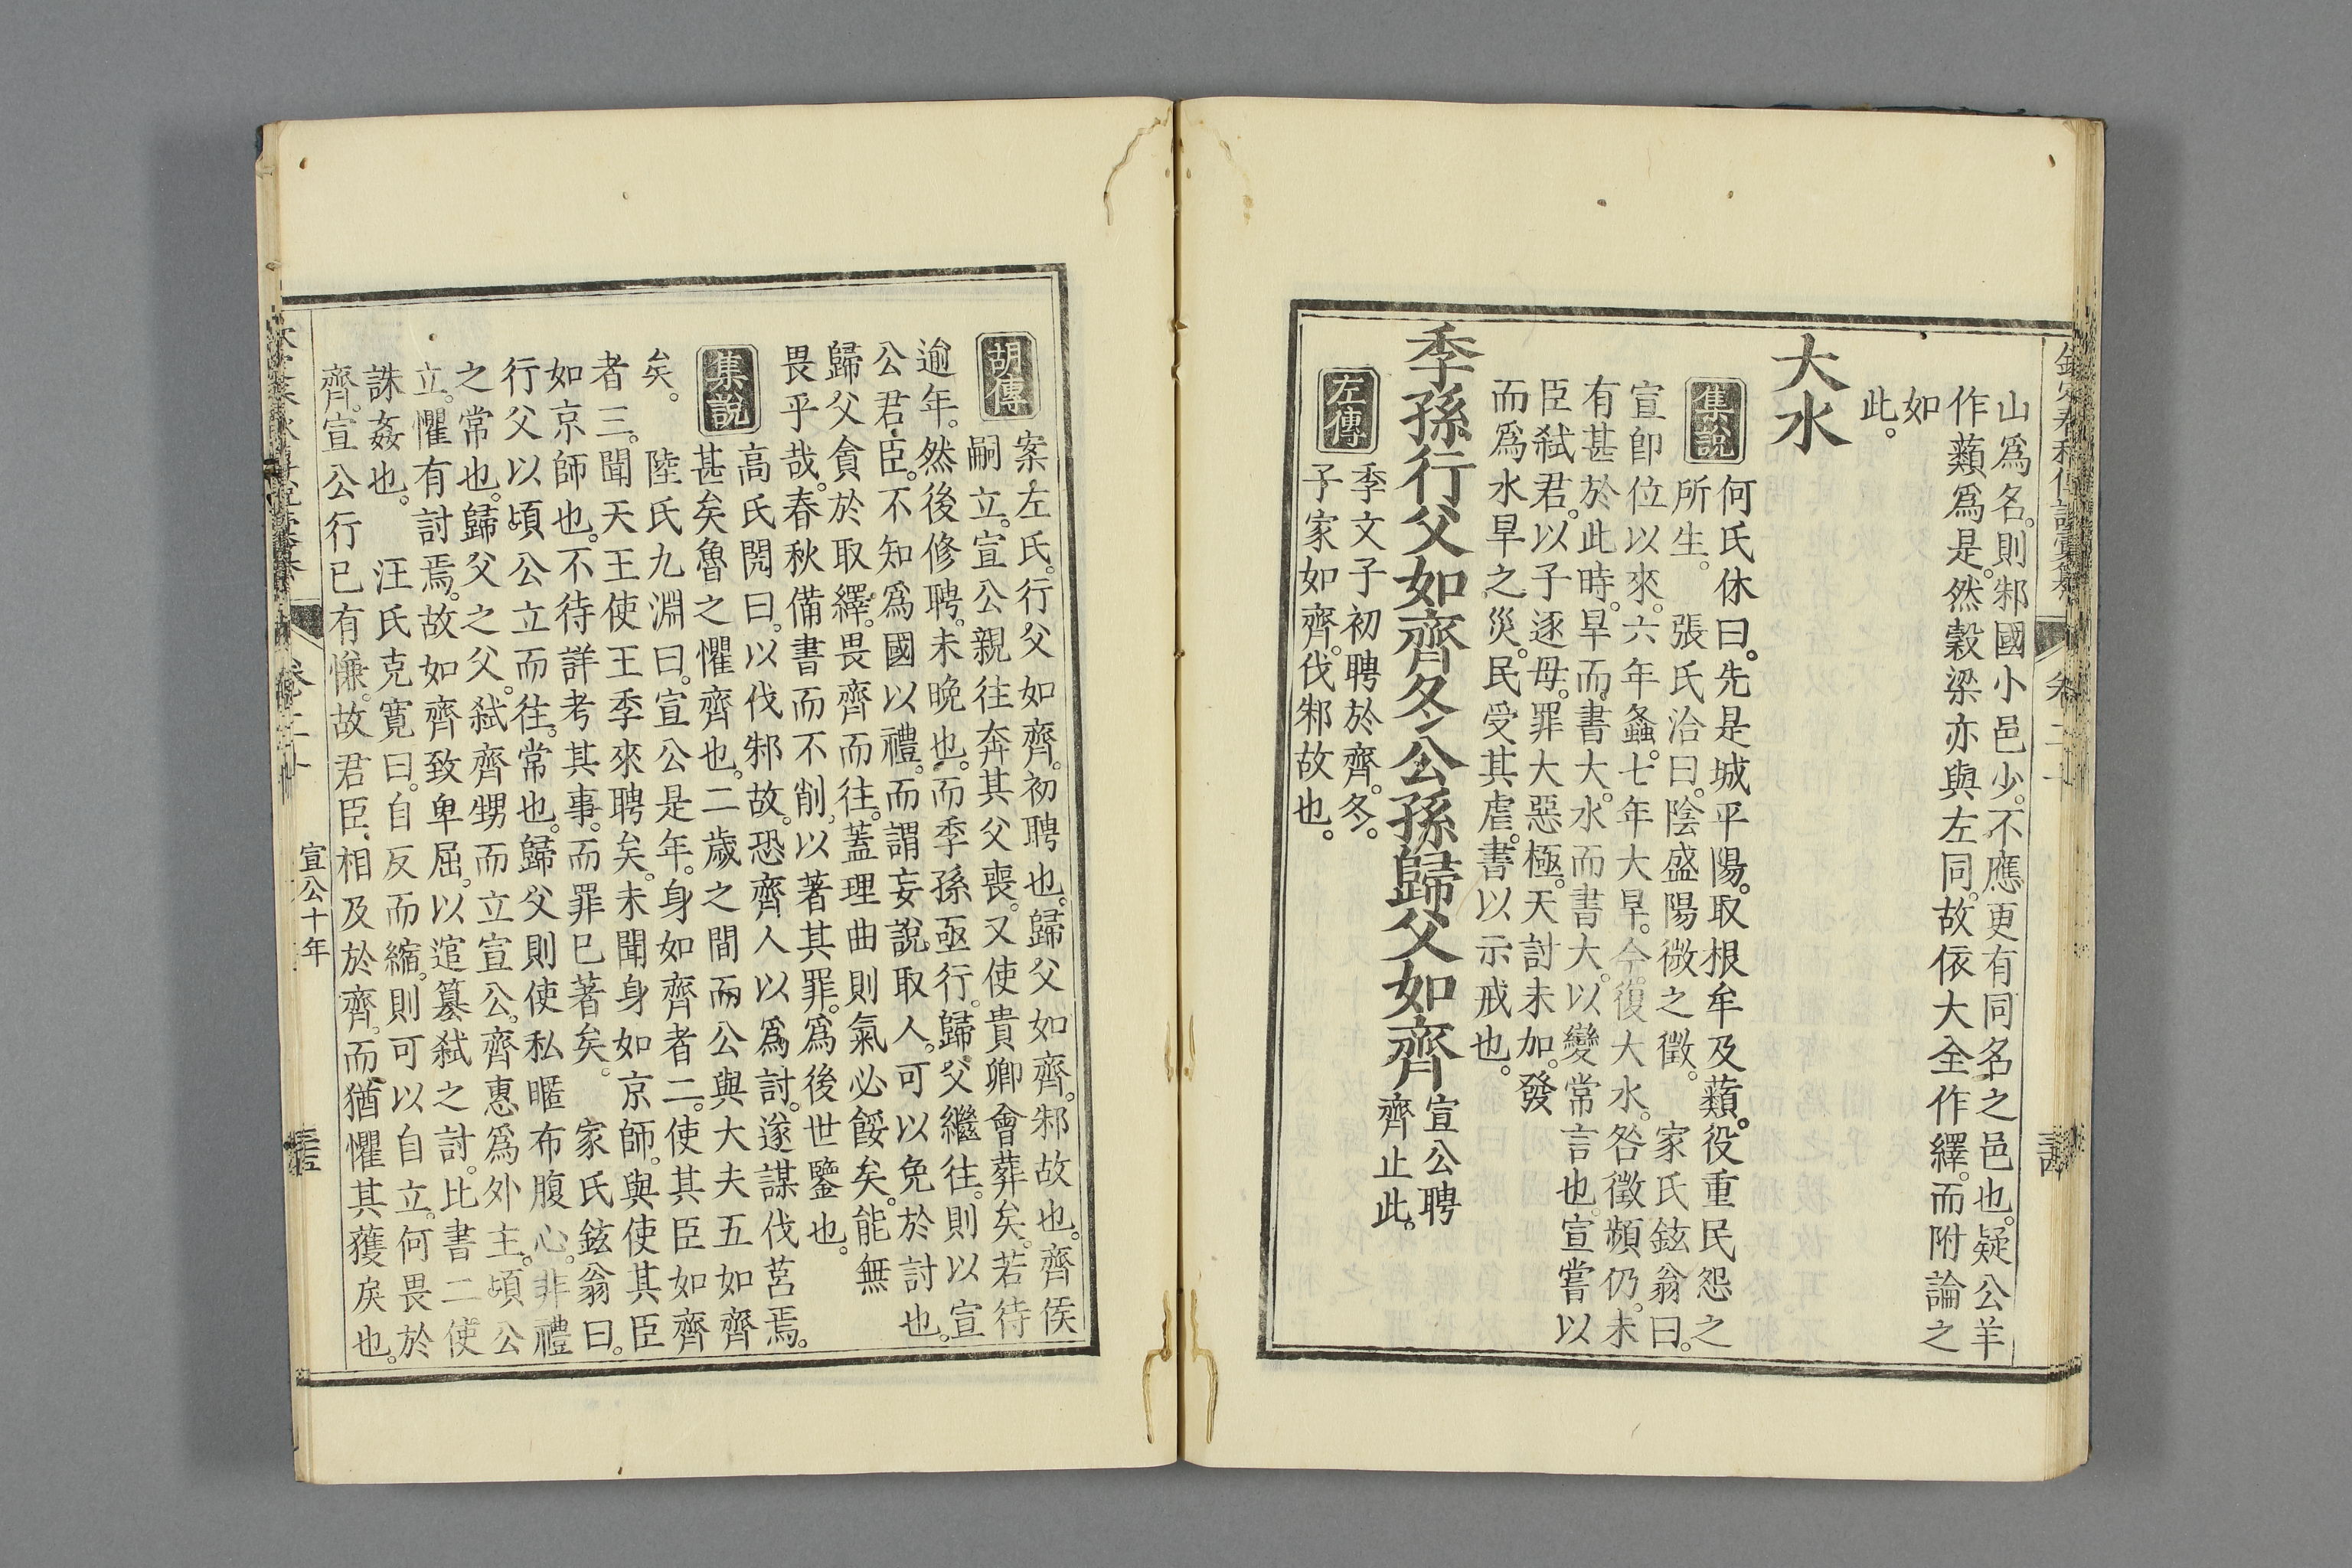 山爲名。則邾國小邑少。不應更有同名之邑也。疑公羊
作蘱爲是。然穀梁亦與左同。故依大全作繹。而附論之
如
此。
大水
集說
何氏休曰。先是城平陽。取根牟及蘱。役重民怨之
所生。　張氏洽曰。陰盛陽微之徵。　家氏鉉翁曰。
宣卽位以來。六年螽。七年大旱。今復大水。咎徵頻仍。未
有甚於此時。旱而書大。水而書大。以變常言也。宣嘗以
臣弑君。以子逐母。罪大惡極。天討未加。發
而爲水旱之災。民受其虐。書以示戒也。
季孫行父如齊冬公孫歸父如齊
宣公聘
齊止此。
左傳
季文子初聘於齊。冬。
子家如齊。伐邾故也。
胡傳
案左氏。行父如齊。初聘也。歸父如齊。邾故也。齊侯
嗣立。宣公親往奔其父喪。又使貴卿會葬矣。若待
逾年。然後修聘。未晚也。而季孫亟行。歸父繼往。則以宣
公君臣。不知爲國以禮。而謂妄說取人。可以免於討也。
歸父貪於取繹。畏齊而往。蓋理曲則氣必餒矣。能無
畏乎哉。春秋備書而不削。以著其罪。爲後世鑒也。
集說
高氏閌曰。以伐邾故。恐齊人以爲討。遂謀伐莒焉。
甚矣魯之懼齊也。二歲之間而公與大夫五如齊
矣。　陸氏九淵曰。宣公是年。身如齊者二。使其臣如齊
者三。聞天王使王季來聘矣。未聞身如京師。與使其臣
如京師也。不待詳考其事。而罪已著矣。　家氏鉉翁曰。
行父以頃公立而往。常也。歸父則使私暱布腹心。非禮
之常也。歸父之父。弑齊甥而立宣公。齊惠爲外主。頃公
立。懼有討焉。故如齊致卑屈。以逭簒弑之討。比書二使
誅姦也。　汪氏克寬曰。自反而縮。則可以自立。何畏於
齊。宣公行已有慊。故君臣相及於齊。而猶懼其獲戾也。
宣公十年